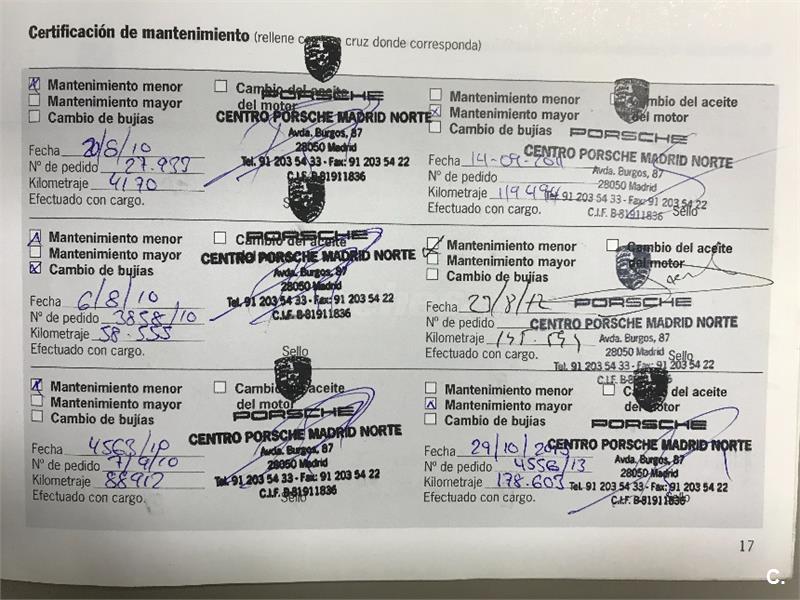 Certificación de mantenimiento (rellene cruz donde corresponda)
X Mantenimiento menor
Mantenimiento mayor
Cambio de bujías
Cambio del aceite
del motor
PORSCHE
CENTRO PORSCHE MADRID NORTE
Avda. Burgos, 87
28050 Madrid
Tel. 91 203 54 33 - Fax: 91 203 54 22
C.I.F. B-81911836
Fecha 20/8/10
Nº de pedido 27.933
Kilometraje 4170
Efectuado con cargo.
Mantenimiento menor
X Mantenimiento mayor
Cambio de bujías
Cambio del aceite
del motor
PORSCHE
CENTRO PORSCHE MADRID NORTE
Avda. Burgos, 87
28050 Madrid
Tel. 91 203 54 33 - Fax: 91 203 54 22
C.I.F. B-81911836
Fecha 14-09-2011
Nº de pedido
Kilometraje
Efectuado con cargo.
Sello
X Mantenimiento menor
Mantenimiento mayor
X Cambio de bujías
Cambio del aceite
PORSCHE
CENTRO PORSCHE MADRID NORTE
Avda. Burgos, 87
28050 Madrid
Tel. 91 203 54 33 - Fax: 91 203 54 22
C.I.F. B-81911836
Fecha 6/8/10
Nº de pedido 3858/10
Kilometraje 58.555
Efectuado con cargo.
Sello
Mantenimiento menor
Mantenimiento mayor
Cambio de bujías
Cambio del aceite
del motor
PORSCHE
CENTRO PORSCHE MADRID NORTE
Avda. Burgos, 87
28050 Madrid
Tel. 91 203 54 33 - Fax: 91 203 54 22
C.I.F. B-81911836
Fecha 23/8/12
Nº de pedido
Kilometraje
Efectuado con cargo.
Sello
X Mantenimiento menor
Mantenimiento mayor
Cambio de bujías
Cambio del aceite
del motor
PORSCHE
CENTRO PORSCHE MADRID NORTE
Avda. Burgos, 87
28050 Madrid
Tel. 91 203 54 33 - Fax: 91 203 54 22
C.I.F. B-81911836
Fecha 4563/10
Nº de pedido 7/9/10
Kilometraje 88912
Efectuado con cargo.
Sello
Mantenimiento menor
X Mantenimiento mayor
Cambio de bujías
Cambio del aceite
del motor
PORSCHE
CENTRO PORSCHE MADRID NORTE
Avda. Burgos, 87
28050 Madrid
Tel. 91 203 54 33 - Fax: 91 203 54 22
C.I.F. B-81911836
Fecha 29/10/2013
Nº de pedido 4556/13
Kilometraje 178.603
Efectuado con cargo.
Sello
17
C.